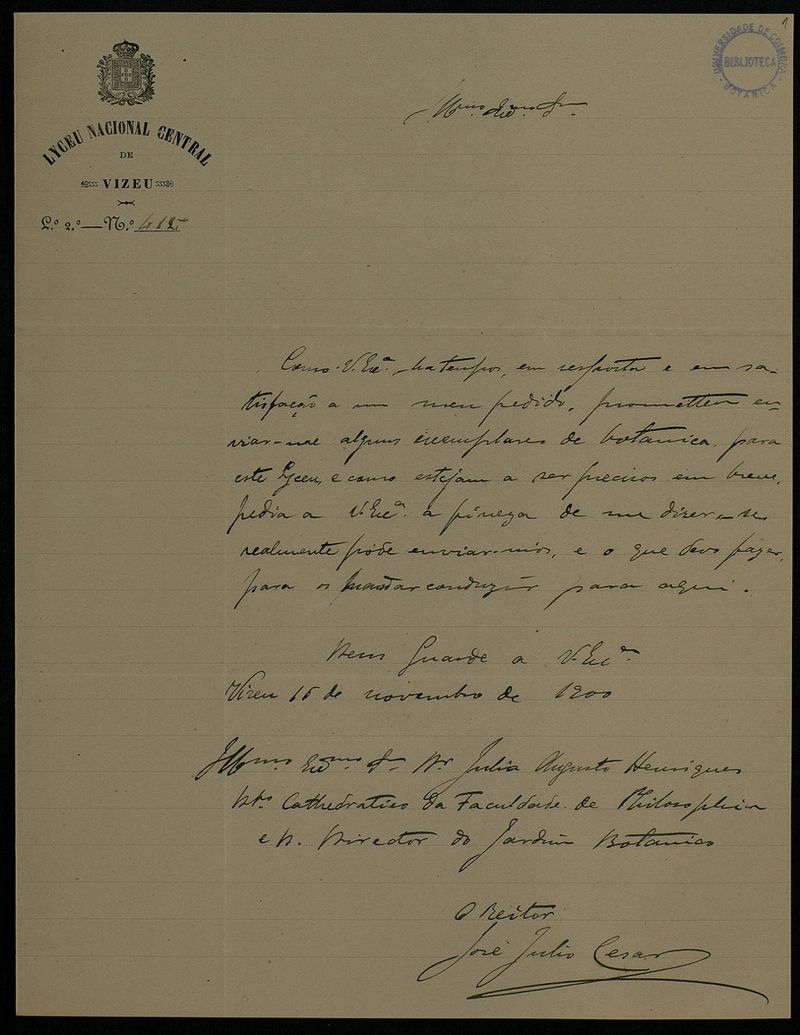 1
UNIVERSIDADE DE COIMBRA
BIBLIOTECA
BOTANICA
LYCEU NACIONAL CENTRAL
DE
VIZEU
L.º 2.º — N.º 415
Illmo. Exmo. Sr.
Como V. Exª. ha tempos, em resposta e em sa-
tisfação a um meu pedido, prometteu en-
viar-me alguns exemplares de botanica para
este Lyceu, e como estejam a ser precisos em breve,
pedia a V. Exª. a fineza de me dizer, se
realmente póde enviar-m'os, e o que devo fazer,
para os mandar conduzir para aqui.
Deus Guarde a V. Exª.
Vizeu 15 de novembro de 1900
Illmo. Exmo. Sr. Dr. Julio Augusto Henriques
Cathedratico da Faculdade de Philosophia
e D. Director do Jardim Botanico
O Reitor
José Julio Cesar